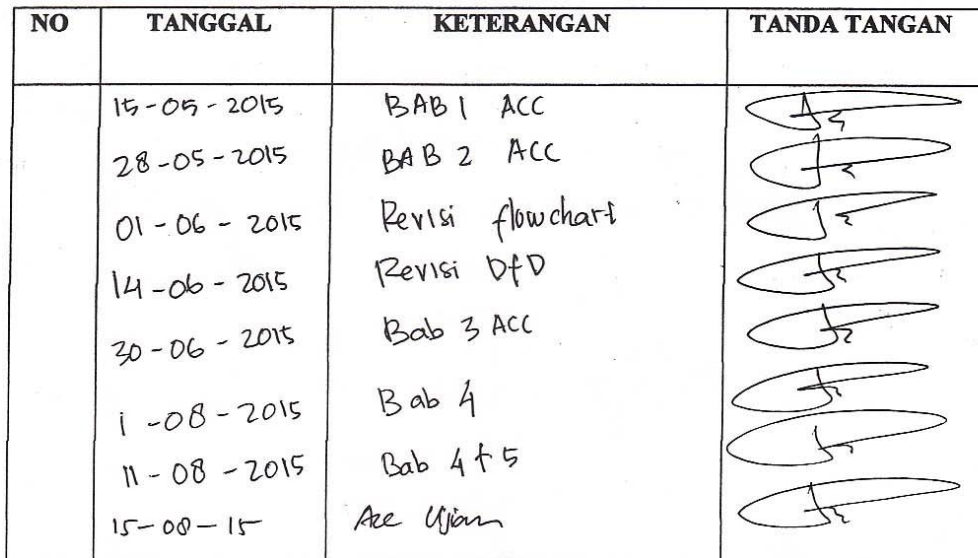 NO TANGGAL KETERANGAN TANDA TANGAN
15-05-2015 BAB 1 ACC
28-05-2015 BAB 2 ACC
01-06-2015 Revisi flowchart
14-06-2015 Revisi DfD
30-06-2015 Bab 3 ACC
1-08-2015 Bab 4
11-08-2015 Bab 4 + 5
15-08-15 Acc Ujian